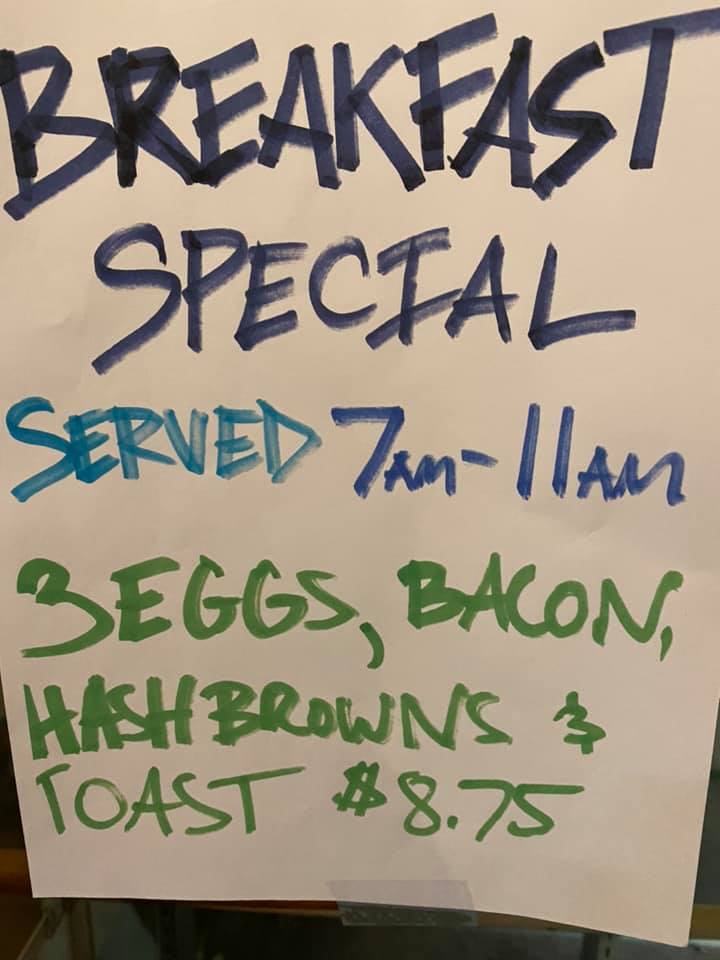 BREAKFAST
SPECIAL
SERVED 7AM-11AM
3 EGGS, BACON,
HASH BROWNS &
TOAST $8.75